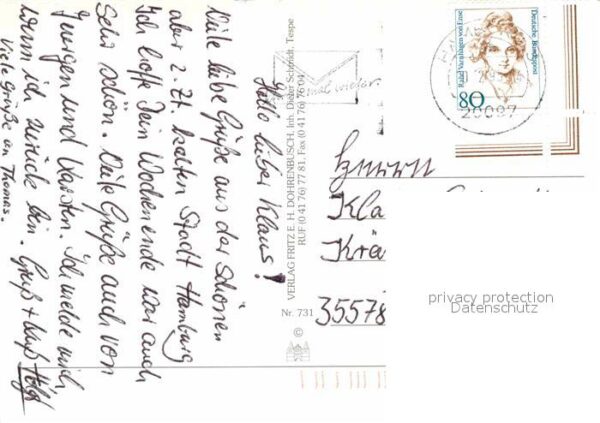 Hallo lieber Klaus!
Viele liebe Grüße aus der schönen
aber z. Zt. kalten Stadt Hamburg
Ich hoffe Dein Wochenende war auch
Sehr schön. Viele Grüße auch von
Juergen und Karsten. Ich melde mich
wenn ich zurück bin. Gruß + Kuß
Viele Grüße an Thomas.
VERLAG FRITZ E. H. DOHRENBUSCH, Inh. Dieter Schmidt, Tespe
RUF (0 41 76) 77 81, Fax (0 41 76) 76 04
Nr. 731
©
mal wieder
Deutsche Bundespost
Rahel Varnhagen von Ense
80
20097
Herrn
Kla
Krä
35578
privacy protection
Datenschutz